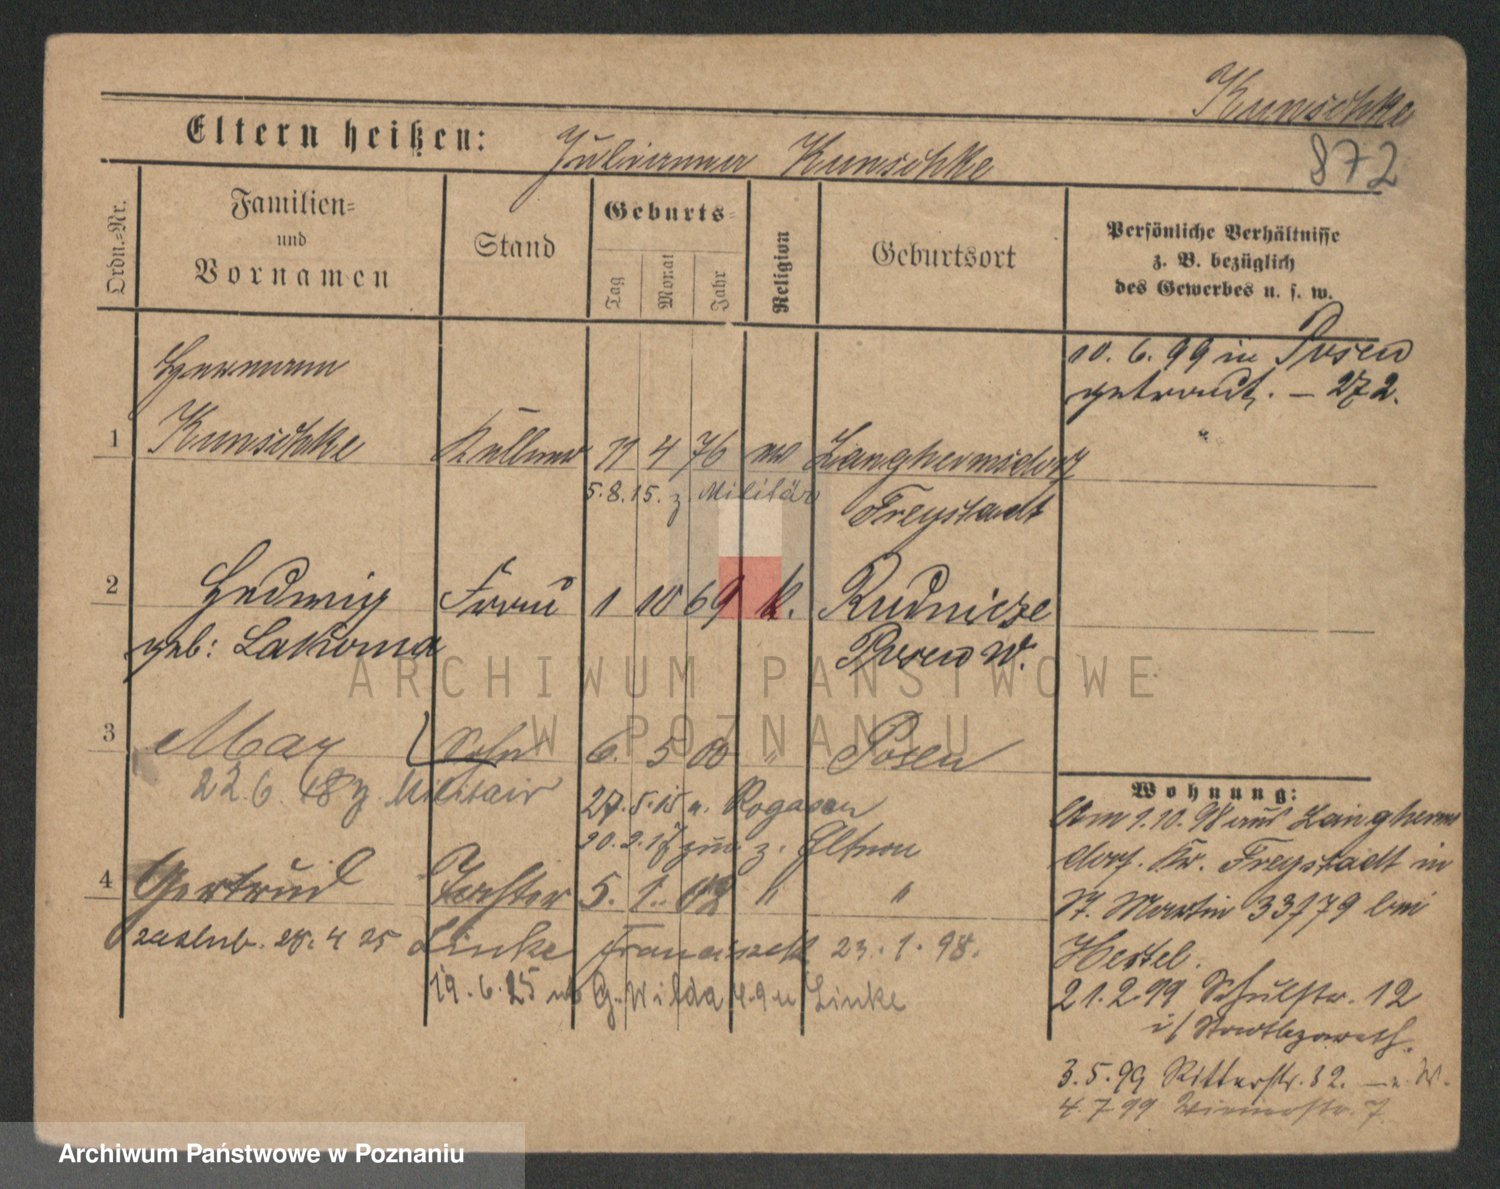 Kunschke
872
Eltern heißen: Julianna Kunschke
Ordn.-Nr.
Familien- und Vornamen
Stand
Geburts-
Tag
Monat
Jahr
Religion
Geburtsort
Persönliche Verhältnisse
z. B. bezüglich
des Gewerbes u. s. w.
10. 6. 99 in Posen
getraut. – 272.
Hermann
1 Kunschke Kellner 11 4 76 ev Langhermsdorf
5.8.15. z. Militär Freystadt
2 Hedwig Frau 1 10 69 k. Rudnicze
geb: Lakoma Posen W.
3 Max Sohn 6. 5 00 " Posen
22.6.18 z. Militair
27.5.15 n. Rogasen
20.2.17 z. Eltern
4 Gertrud Tochter 5. 1. 02 " "
zaślub. 28. 4 25 Linke Franciszek 23. 1. 98.
19. 6. 25 G. Wilda Linke
Wohnung:
Am 1.10.98 aus Langherms
dorf. Kr. Freystadt in
St. Martin 33/79 bei
Hertel.
21.2.99 Schulstr. 12
i/ Stadtlazareth.
3.5.99 Ritterstr. 32. W.
4.7.99 7
ARCHIWUM PAŃSTWOWE
W POZNANIU
Archiwum Państwowe w Poznaniu